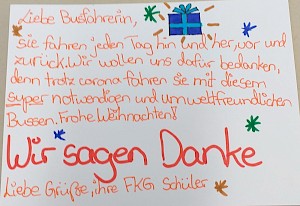 Liebe Busfahrerin,
sie fahren jeden Tag hin und her, vor und
zurück. Wir wollen uns dafür bedanken,
denn trotz corona fahren sie mit diesem
super notwendigen und umweltfreundlichen
Bussen. Frohe Weihnachten!
Wir sagen Danke
Liebe Grüße, ihre FKG Schüler